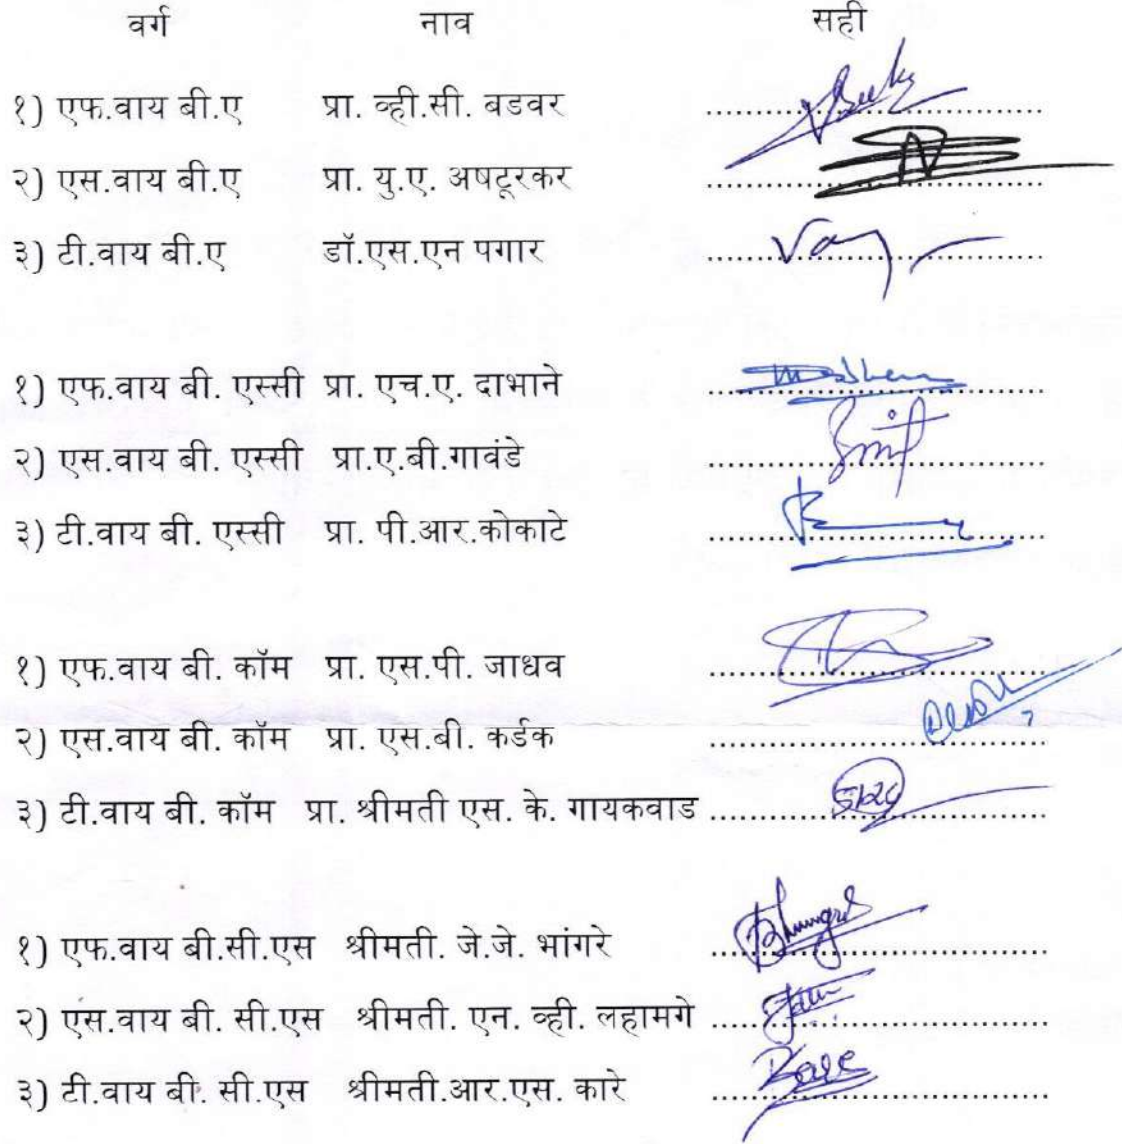 वर्ग नाव सही
१) एफ.वाय बी.ए प्रा. व्ही.सी. बडवर ....................
२) एस.वाय बी.ए प्रा. यु.ए. अषटूरकर ....................
३) टी.वाय बी.ए डॉ.एस.एन पगार ....................
१) एफ.वाय बी. एस्सी प्रा. एच.ए. दाभाने ....................
२) एस.वाय बी. एस्सी प्रा.ए.बी.गावंडे ....................
३) टी.वाय बी. एस्सी प्रा. पी.आर.कोकाटे ....................
१) एफ.वाय बी. कॉम प्रा. एस.पी. जाधव ....................
२) एस.वाय बी. कॉम प्रा. एस.बी. कर्डक ....................
३) टी.वाय बी. कॉम प्रा. श्रीमती एस. के. गायकवाड ....................
१) एफ.वाय बी.सी.एस श्रीमती. जे.जे. भांगरे ....................
२) एस.वाय बी. सी.एस श्रीमती. एन. व्ही. लहामगे ....................
३) टी.वाय बी. सी.एस श्रीमती.आर.एस. कारे ....................